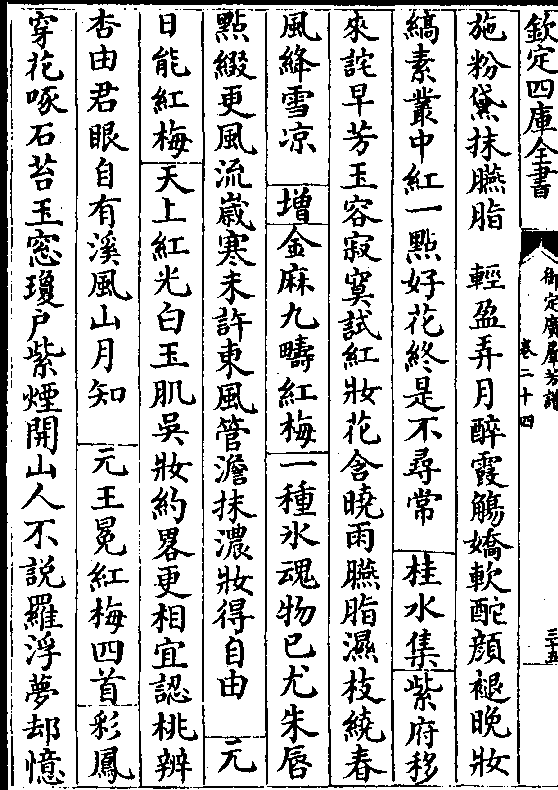 欽定四庫全書
御定廣羣芳譜
卷二十四
三十五
施粉黛抹臙脂 輕盈弄月醉霞觴嬌軟酡顔褪晚妝
縞素叢中紅一點好花終是不尋常 桂水集紫府移
來詫早芳玉容寂寞試紅妝花含曉雨臙脂濕枝繞春
風絳雪凉 增金麻九疇紅梅一種氷魂物已尤朱唇
點綴更風流歲寒未許東風管澹抹濃妝得自由 元
日能紅梅天上紅光白玉肌吳妝約畧更相宜認桃辨
杏由君眼自有溪風山月知 元王冕紅梅四首彩鳳
穿花啄石苔玉窓瓊户紫煙開山人不説羅浮夢却憶